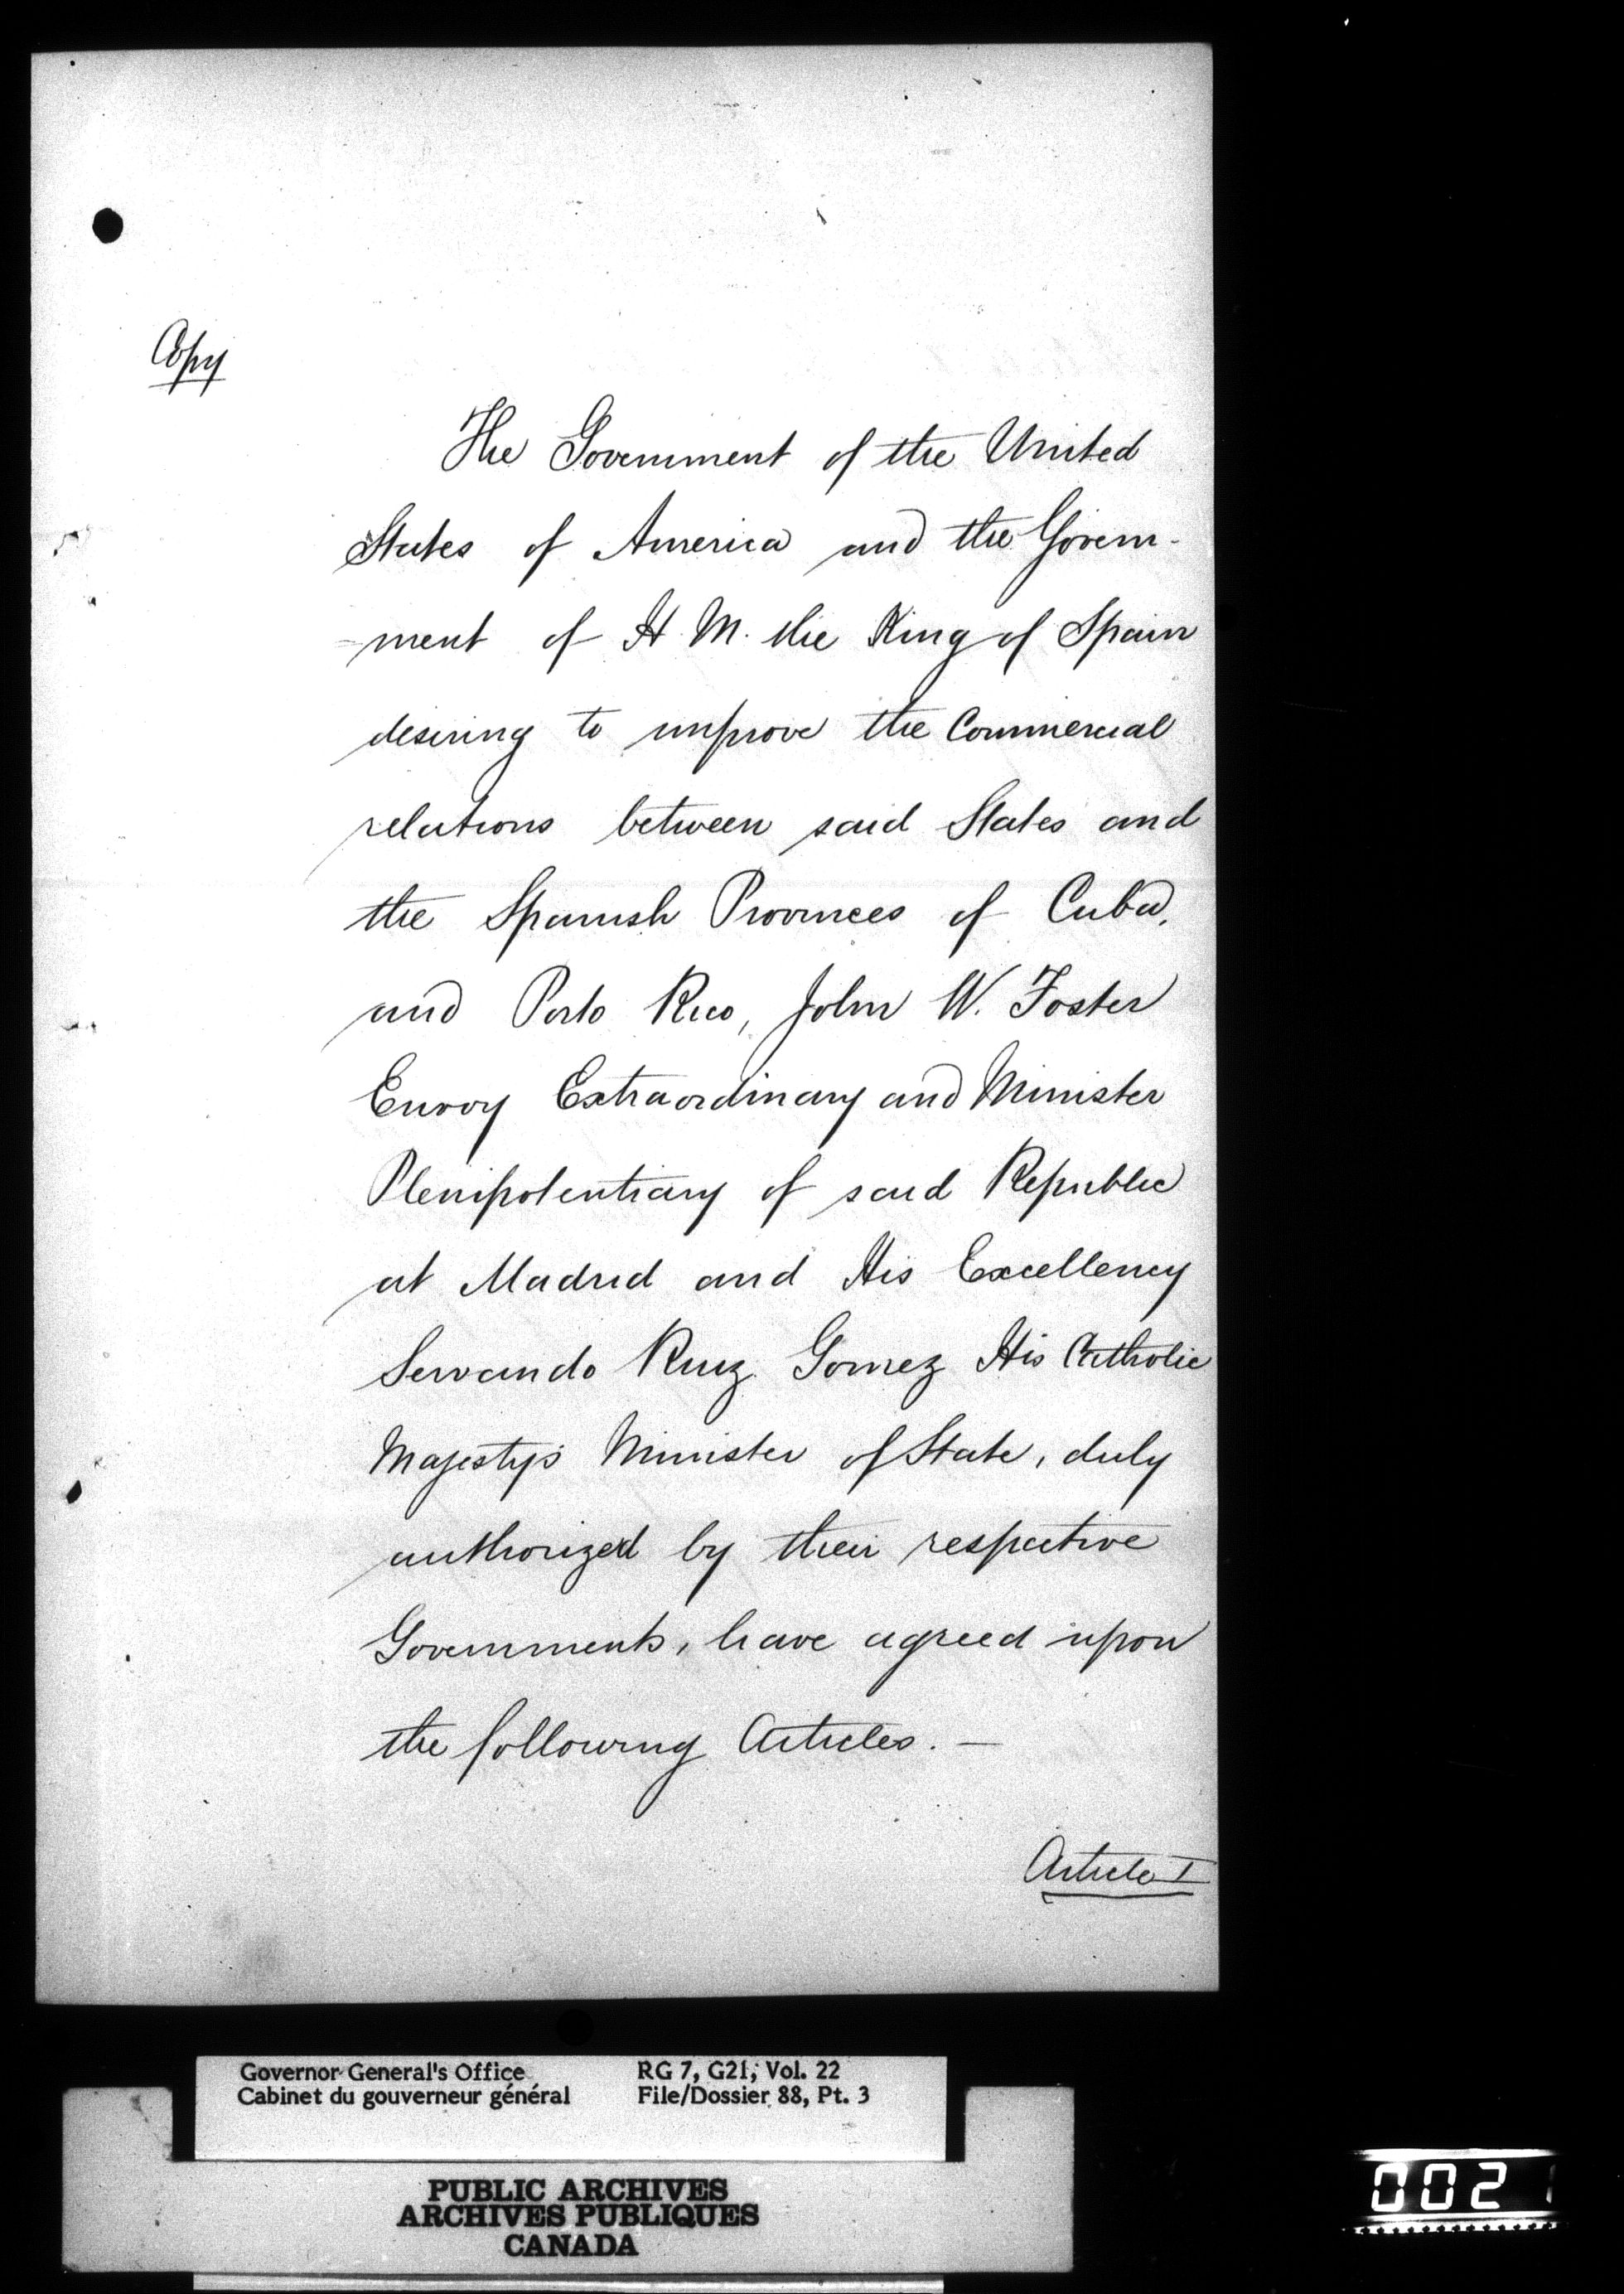 Copy
The Government of the United
States of America and the Govern-
-ment of H. M. the King of Spain
desiring to improve the Commercial
relations between said States and
the Spanish Provinces of Cuba,
and Porto Rico, John W. Foster
Envoy Extraordinary and Minister
Plenipotentiary of said Republic
at Madrid and His Excellency
Servando Ruiz Gomez His Catholic
Majesty's Minister of State, duly
authorized by their respective
Governments, have agreed upon
the following Articles. —
Article I
Governor General's Office RG 7, G21, Vol. 22
Cabinet du gouverneur général File/Dossier 88, Pt. 3
PUBLIC ARCHIVES
ARCHIVES PUBLIQUES
CANADA
002